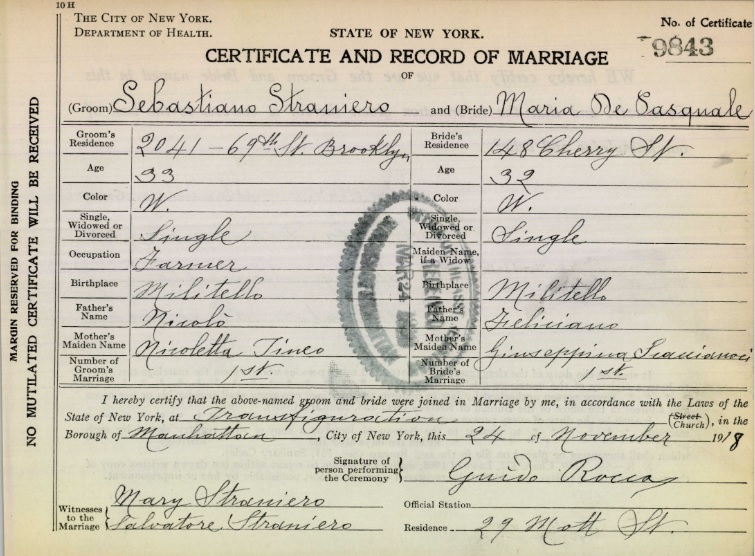 10 H
THE CITY OF NEW YORK.
DEPARTMENT OF HEALTH.
STATE OF NEW YORK.
No. of Certificate
9843
CERTIFICATE AND RECORD OF MARRIAGE
OF
(Groom) Sebastiano Straniero and (Bride) Maria De Pasquale
Groom's Residence 2041-69th St. Brooklyn Bride's Residence 148 Cherry St.
Age 33 Age 32
Color W. Color W.
Single, Widowed or Divorced Single Single, Widowed or Divorced Single
Occupation Farmer Maiden Name, if a Widow
Birthplace Militello Birthplace Militello
Father's Name Nicolò Father's Name Feliciano
Mother's Maiden Name Nicoletta Tineo Mother's Maiden Name Giuseppina
Number of Groom's Marriage 1st. Number of Bride's Marriage 1st.
I hereby certify that the above-named groom and bride were joined in Marriage by me, in accordance with the Laws of the
State of New York, at Transfiguration (Street Church), in the
Borough of Manhattan, City of New York, this 24 of November 1918
Signature of person performing the Ceremony Guido Rocca
Witnesses to the Marriage Mary Straniero
Salvatore Straniero
Official Station
Residence 29 Mott St.
MARGIN RESERVED FOR BINDING
NO MUTILATED CERTIFICATE WILL BE RECEIVED